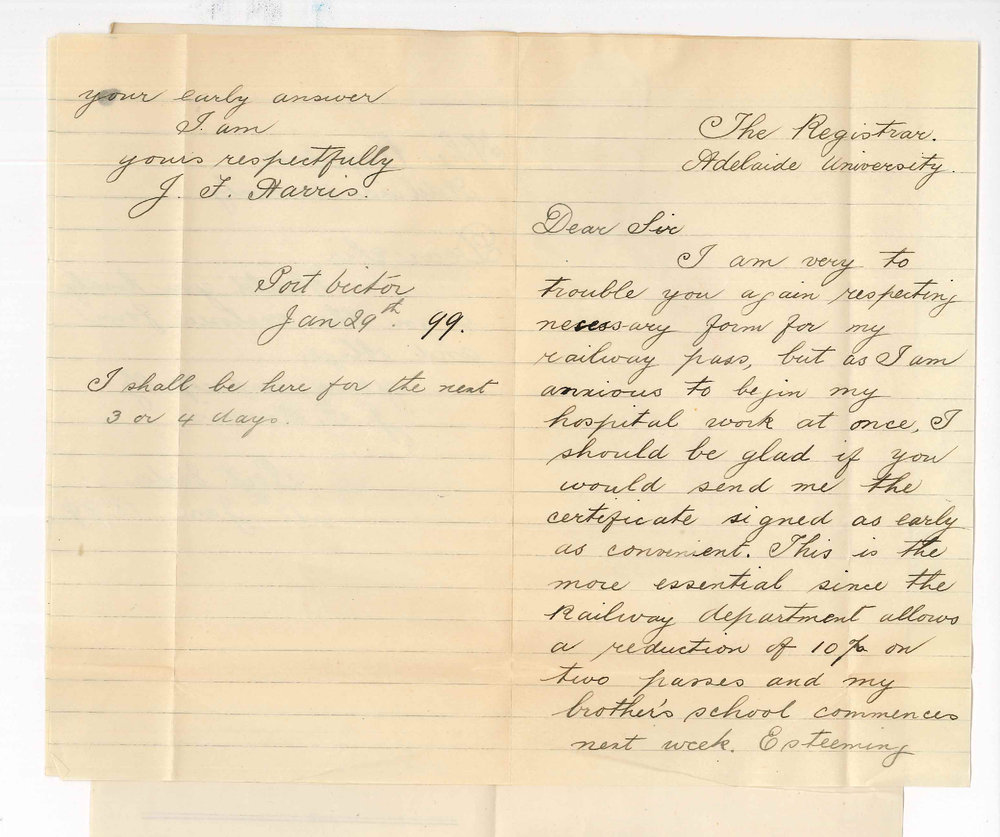 The Registrar.
Adelaide University.
Dear Sir
I am very to
trouble you again respecting
necessary form for my
railway pass, but as I am
anxious to begin my
hospital work at once, I
should be glad if you
would send me the
certificate signed as early
as convenient. This is the
more essential since the
Railway department allows
a reduction of 10% on
two passes and my
brother's school commences
next week. Esteeming
your early answer
I am
yours respectfully
J. F. Harris.
Port Victor
Jan 29th. 99.
I shall be here for the next
3 or 4 days.